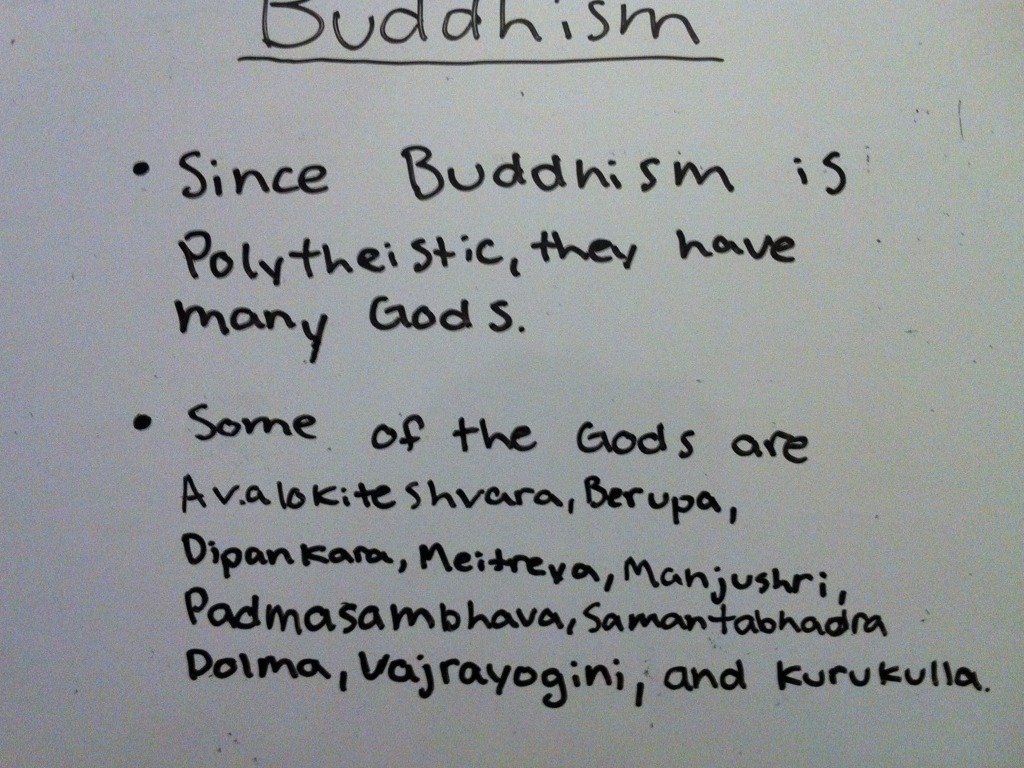 Buddhism
• Since Buddhism is
Polytheistic, they have
many Gods.
• Some of the Gods are
Avalokiteshvara, Berupa,
Dipankara, Meitreya, Manjushri,
Padmasambhava, Samantabhadra
Dolma, Vajrayogini, and Kurukulla.